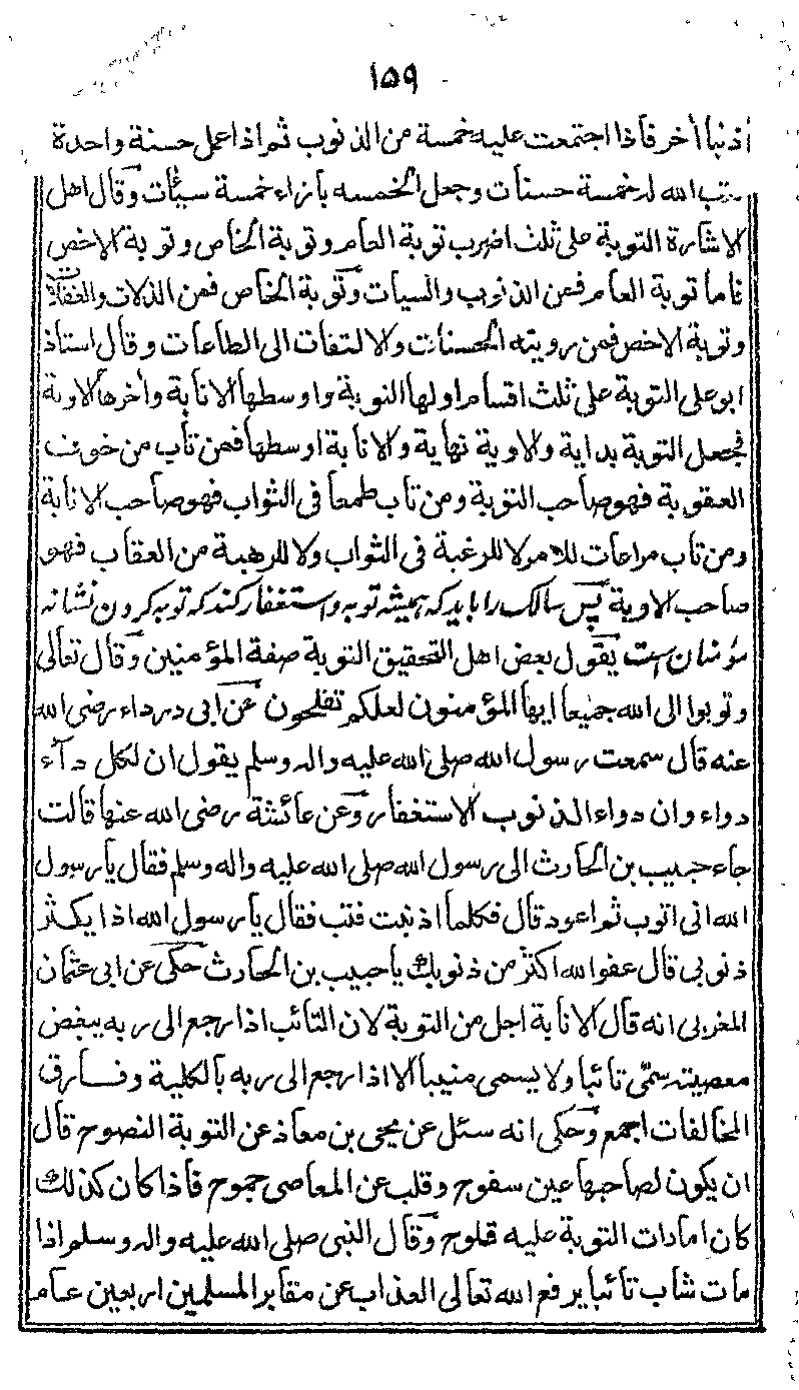 ١٥٩
اذنبا أخر فاذا اجتمعت عليه خمسة من الذنوب ثم اذا عمل حسنة واحدة
كتب الله له خمسة حسنات وجعل الخمسه بأزاء خمسة سيئات وقال اهل
الاشارة التوبة على ثلث اضرب توبة العام وتوبة الخاص وتوبة الاخص
فاما توبة العام فمن الذنوب والسيات وتوبة الخاص فمن الذلات والغفلات
وتوبة الاخص فمن رويته الحسنات والالتفات الى الطاعات وقال استاذ
ابو على التوبة على ثلث اقسام اولها التوبة واوسطها الانابة وأخرها الاوبة
فجعل التوبة بداية والاوبة نهاية والانابة اوسطها فمن تأب من خوف
العقوبة فهو صاحب التوبة ومن تأب طمعا فى الثواب فهو صاحب الانابة
ومن تأب مراعات للامر لا للرغبة فى الثواب ولا للرهبة من العقاب فهو
صاحب الاوبة پس سالک را باید که همیشه توبه و استغفار کند که توبه کردن نشانه
مؤمنان است يقول بعض اهل التحقيق التوبة صفة المؤمنين وقال تعالى
وتوبوا الى الله جميعا ايها المؤمنون لعلكم تفلحون عن ابى درداء رضى الله
عنه قال سمعت رسول الله صلى الله عليه واله وسلم يقول ان لكل دآء
دواء وان دواء الذنوب الاستغفار وعن عائشة رضى الله عنها قالت
جاء حبيب بن الحارث الى رسول الله صلى الله عليه واله وسلم فقال يأرسول
الله انى اتوب ثم اعود قال فكلما اذنبت فتب فقال يأرسول الله اذا يكثر
ذنوبى قال عفو الله اكثر من ذنوبك ياحبيب بن الحارث حكى عن ابى عثمان
المغربى انه قال الانابة اجل من التوبة لان التائب اذا رجع الى ربه ببغض
معصيته سمّى تائبا ولا يسمى منيبا الا اذا رجع الى ربه بألكلية وفارق
المخالفات اجمع وحكى انه سئل عن يحيى بن معاذ عن التوبة النصوح قال
ان يكون لصاحبها عين سفوح وقلب عن المعاصى جموح فأذا كان كذلك
كان امادات التوبة عليه قلوح وقال النبى صلى الله عليه واله وسلم اذا
مات شاب تائبا يرفع الله تعالى العذاب عن مقابر المسلمين اربعين عام